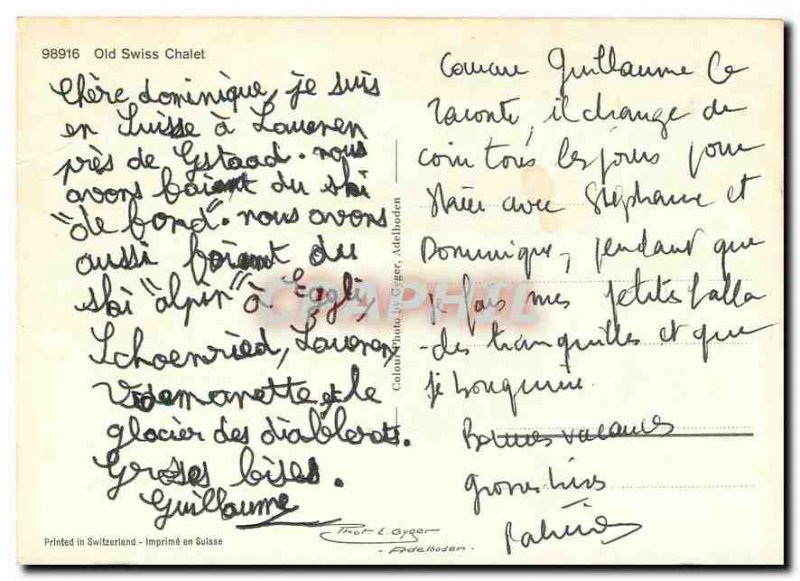 98916 Old Swiss Chalet
Chère dominique, je suis
en Suisse à Laueren
près de Gstaad. nous
avons faient du ski
"de fond". nous avons
aussi faient du
ski "alpin" à Eggli,
Schoenried, Laueren,
Videmanette et le
glacier des diablerets.
Groses bises.
Guillaume
Printed in Switzerland - Imprimé en Suisse
Colour Photo by Gyger, Adelboden
Phot. E. Gyger
- Adelboden -
Comme Guillaume le
raconte, il change de
coin tous les jours pour
skier avec Stéphane et
Dominique, pendant que
je fais mes petites balla
-des tranquilles et que
je bouquine.
Bonnes vacances
grosses bises